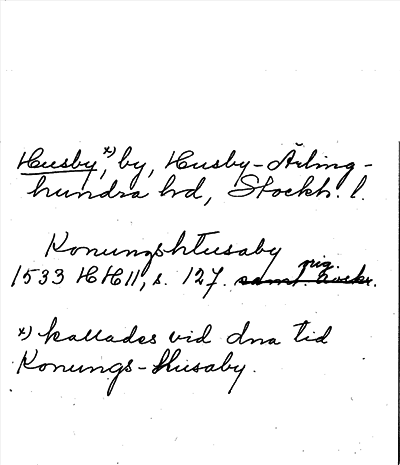 Husby,x) by, Husby-Ärling-
hundra hd, Stockh. l.
Konungshusaby
1533 HH11, s. 127.
x) kallades vid dna tid
Konungs-Husaby.